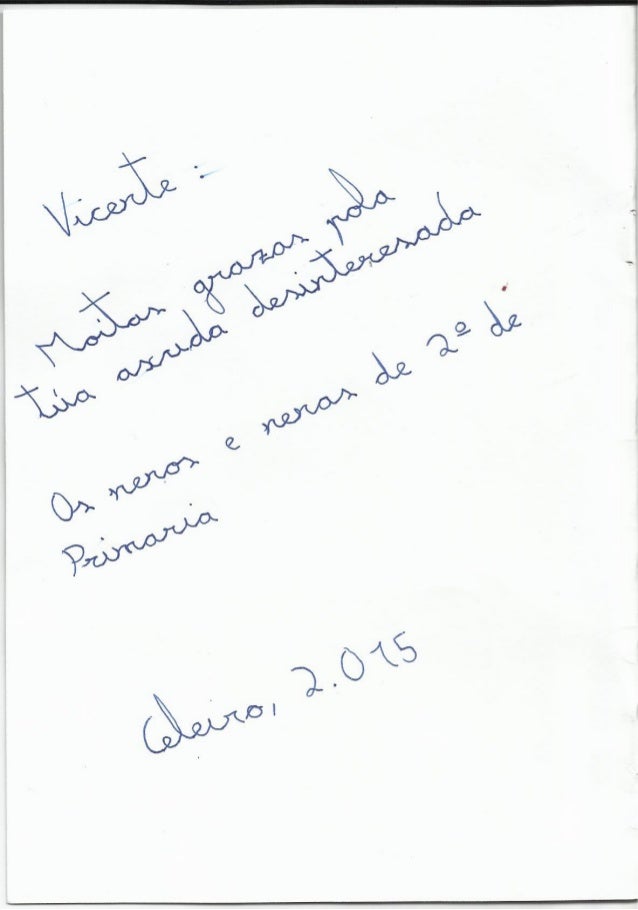 Vicente:
Moitas grazas pola
túa axuda desinteresada
Os nenos e nenas de 2º de
Primaria
Celeiro, 2.015